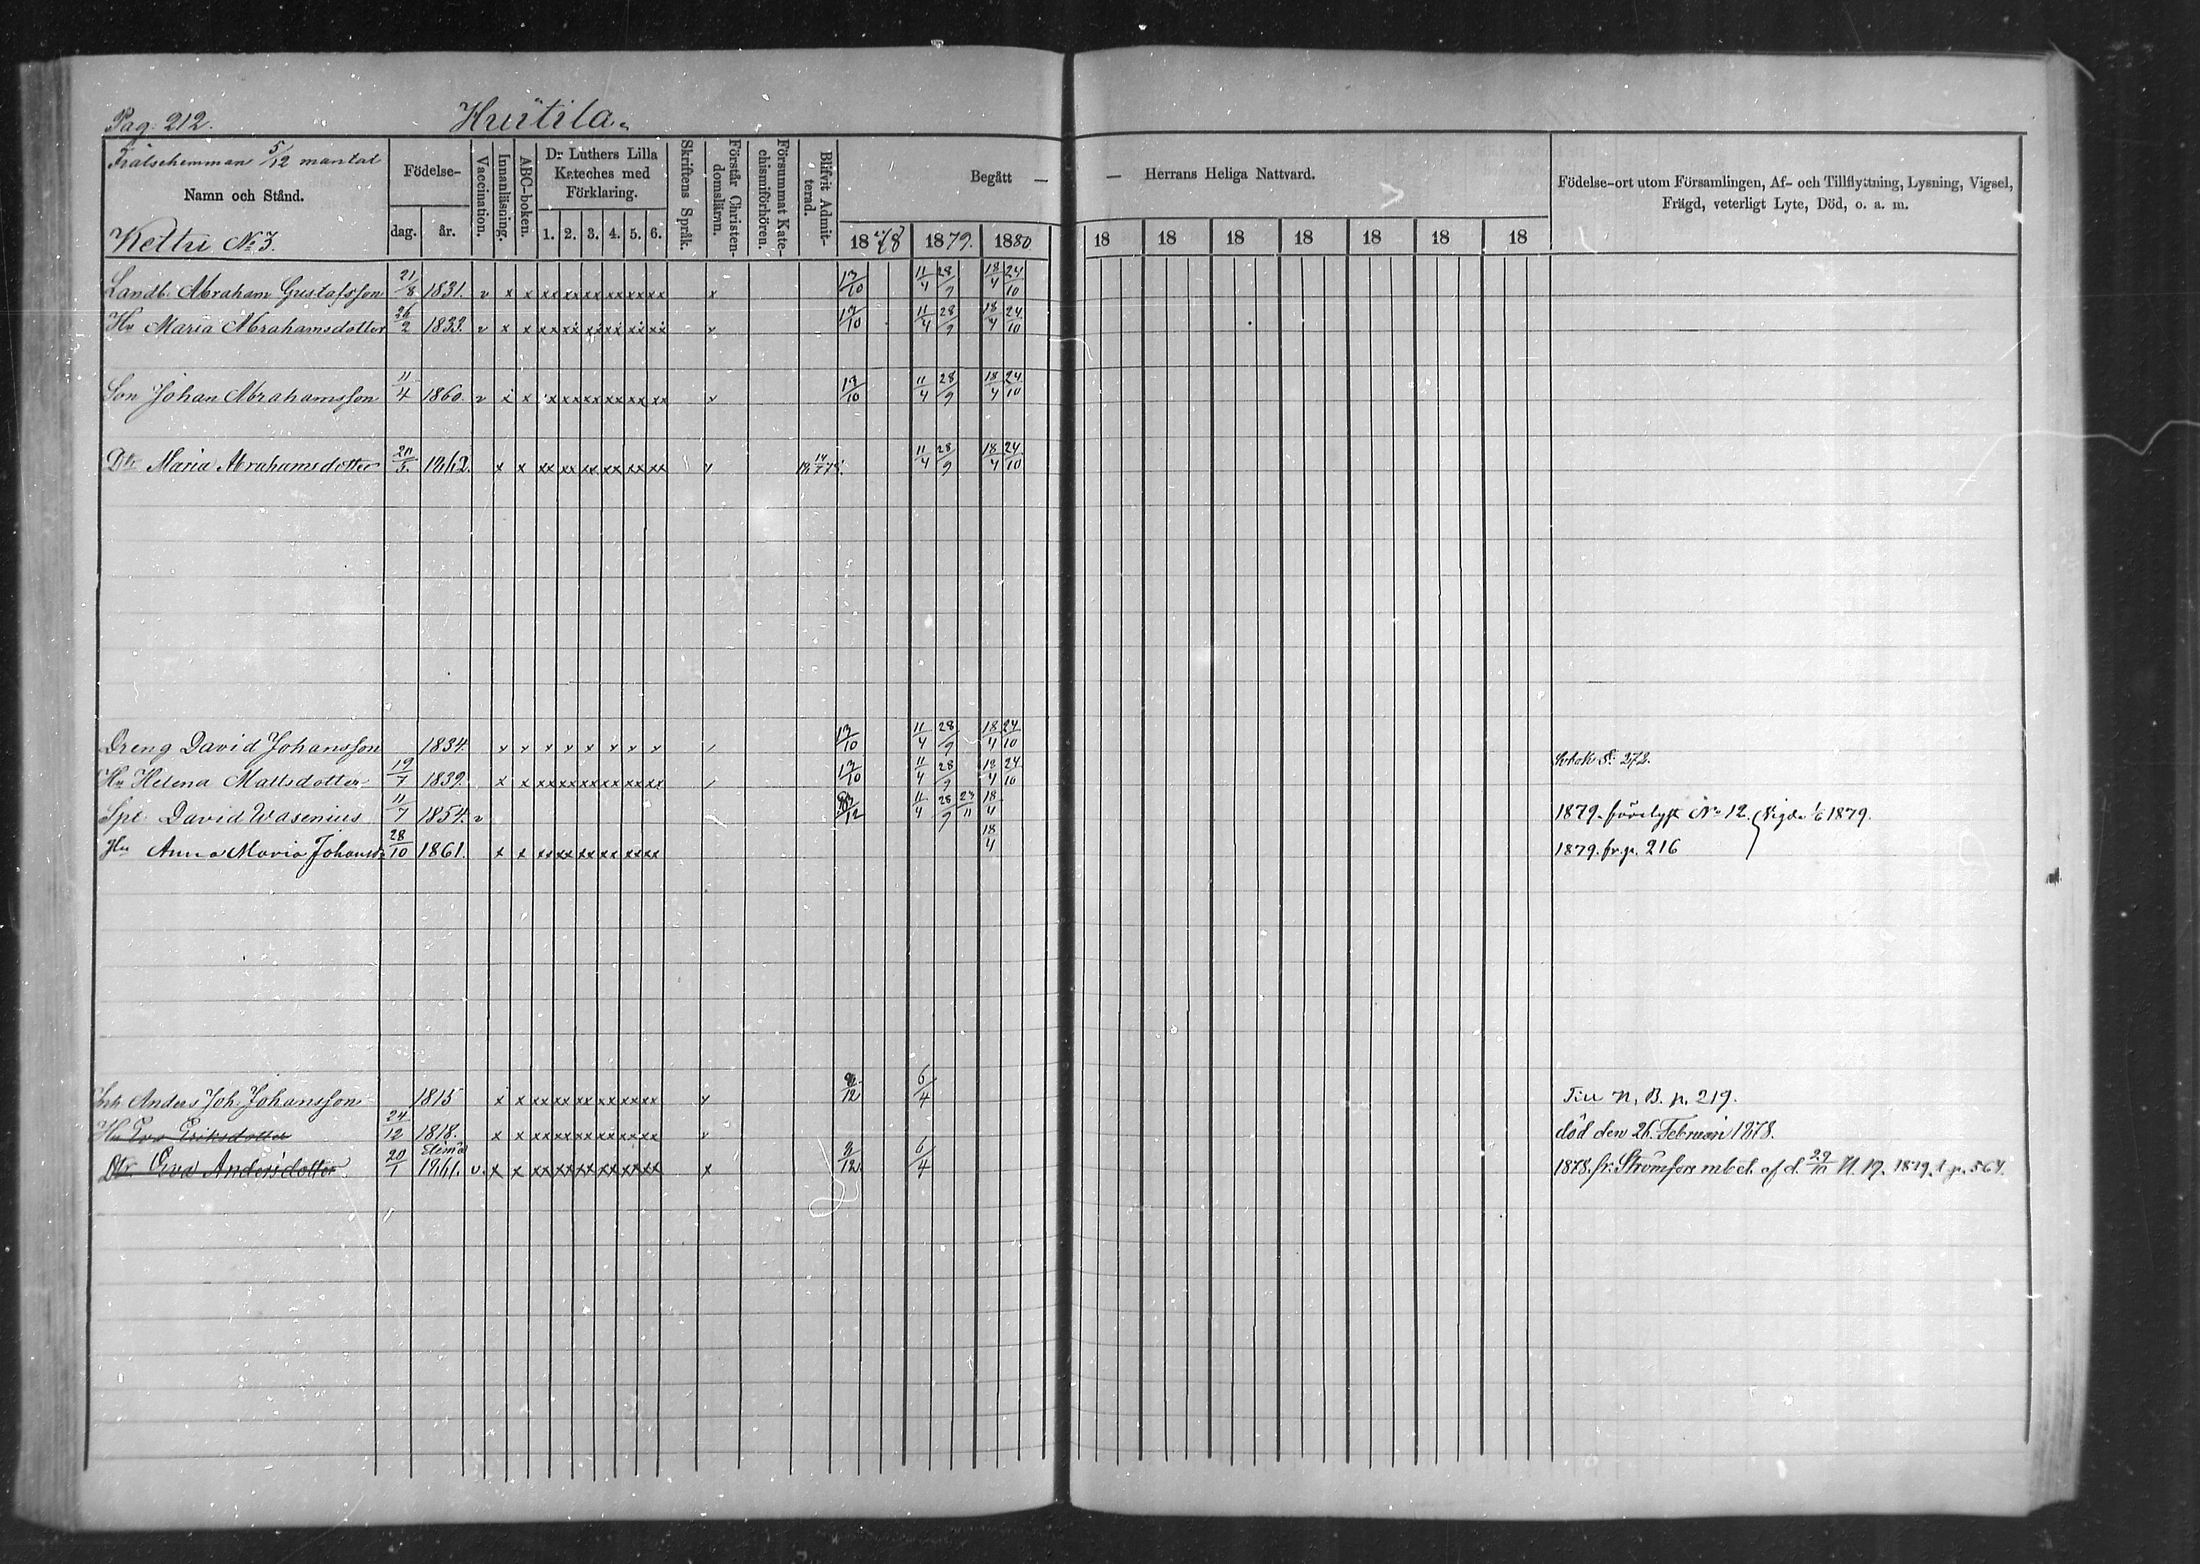 Pag: 212. Huitila.
Frälsehemman 5/12 mantal
Namn och Stånd.
Kettu No 3.
Födelse-
dag. år.
Vaccination.
Innanläsning.
ABC-boken.
D:r Luthers Lilla
Kateches med
Förklaring.
1. 2. 3. 4. 5. 6.
Skriftens Språk.
Förstår Christen-
domsläran.
Försummat Kate-
chismiförhören.
Blifvit Admit-
terad.
Begått — — Herrans Heliga Nattvard.
1878 1879. 1880 18 18 18 18 18 18 18
Födelse-ort utom Församlingen, Af- och Tillflyttning, Lysning, Vigsel,
Frägd, veterligt Lyte, Död, o. a. m.
Landb. Abraham Gustafsson 21/8 1831. v x x xx xx xx xx xx xx x 13/10 11/4 28/9 18/4 24/10
Hu Maria Abrahamsdotter 26/2 1833. v x x xx xx xx xx xx xx v 13/10 11/4 28/9 18/4 24/10
Son Johan Abrahamsson 11/4 1860. v x x xx xx xx xx xx xx v 13/10 11/4 28/9 18/4 24/10
Dtr Maria Abrahamsdotter 1862. x x xx xx xx xx xx xx v 11/4 28/9 18/4 24/10
Dreng David Johansson 1834. x x x x x x x x / 13/10 11/4 28/9 18/4 24/10
Hu Helena Mattsdotter 19/7 1839. x x xx xx xx xx xx xx / 13/10 11/4 28/9 18/4 24/10 S: 272.
Spt. David Wasenius 11/7 1854. v 11/4 28/9 23/11 18/4 1879. No 12. Vigde 1/6 1879.
Hu Anna Maria Johansd: 28/10 1861. x x xx xx xx xx xx xx 18/4 1879. fr. p. 216
Inh. Anders Joh: Johansson 1815 x x xx xx xx xx xx xx v 6/4 Till N. B. p. 219.
Hu Eva Eriksdotter 24/12 1818. x x xx xx xx xx xx xx v död den 26. Februari 1878.
Elimä
Dtr Eva Andersdotter 20/1 1861. v. x x xx xx xx xx xx xx x 6/4 1878. fr. Strömfors m bet. af d. 29/10 N. 17. 1879. t. p. 564.